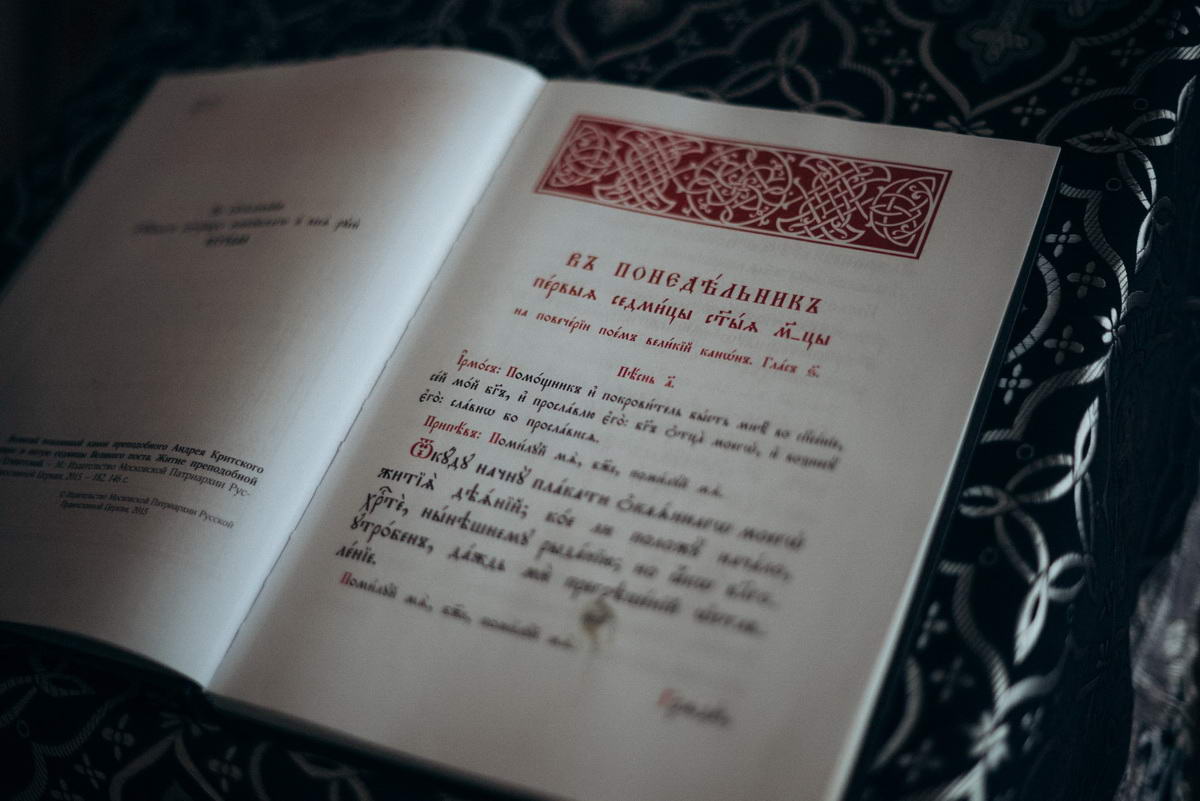 Великий покаянный канон преподобного Андрея Критского
утро седмицы Великого поста. Житие преподобной
Египетской. – М.: Издательство Московской Патриархии Рус-
Церкви, 2015 – 182, 146 с.
© Издательство Московской Патриархии Русской
Православной Церкви, 2015
ВЪ ПОНЕДѢ́ЛЬНИКЪ
пе́рвыѧ седми́цы ст҃ы́ѧ м҃-цы
на повече́рїи пое́мъ вели́кїй канѡ́нъ. Гла́съ ѕ҃.
Пѣ́снь а҃.
І҆рмо́съ: Помо́щникъ и҆ покрови́тель бы́сть мнѣ̀ во сп҃се́нїе,
се́й мо́й бг҃ъ, и҆ просла́влю є҆го̀: бг҃ъ ѻ҆тца̀ моегѡ̀, и҆ вознесꙋ̀
є҆го̀: сла́внѡ бо просла́висѧ.
Припѣ́въ: Поми́лꙋй мѧ̀, бж҃е, поми́лꙋй мѧ̀.
Ѿкꙋ́дꙋ начнꙋ̀ пла́кати ѻ҆каѧ́ннагѡ моегѡ̀
житїѧ̀ дѣѧ́нїй; ко́е ли положꙋ̀ нача́ло,
хрⷭ҇тѐ, ны́нѣшнемꙋ рыда́нїю; но ꙗ҆́кѡ бл҃гоꙋ-
ꙋтро́бенъ, да́ждь мѝ прегрѣше́нїй ѡ҆ставле́-
ле́нїе.
Поми́лꙋй мѧ̀, бж҃е, поми́лꙋй мѧ̀.